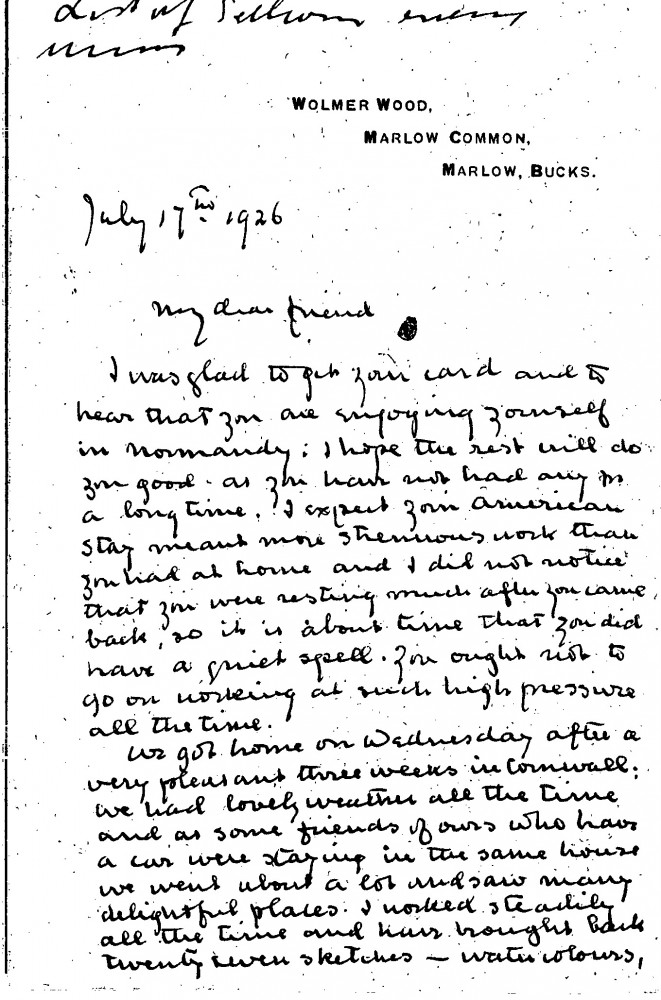 List of
WOLMER WOOD,
MARLOW COMMON,
MARLOW, BUCKS.
July 17th 1926
My dear friend
I was glad to get your card and to
hear that you are enjoying yourself
in Normandy; I hope the rest will do
you good as you have not had any for
a long time. I expect your American
stay meant more strenuous work than
you had at home and I did not notice
that you were resting much after you came
back, so it is about time that you did
have a quiet spell. You ought not to
go on working at such high pressure
all the time.
We got home on Wednesday after a
very pleasant three weeks in Cornwall;
we had lovely weather all the time
and as some friends of ours who have
a car were staying in the same house
we went about a lot and saw many
delightful places. I worked steadily
all the time and have brought back
twenty seven sketches — water colours,